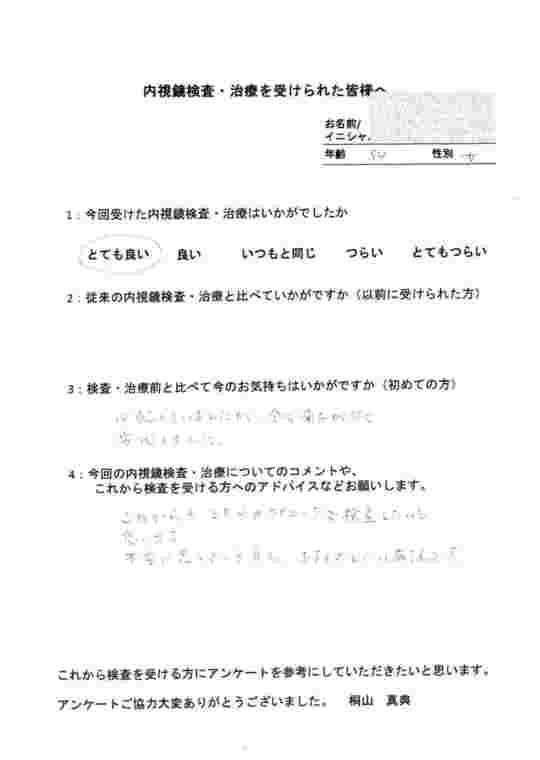 内視鏡検査・治療を受けられた皆様へ
お名前/
イニシャ
年齢 54 性別 女
1：今回受けた内視鏡検査・治療はいかがでしたか
とても良い 良い いつもと同じ つらい とてもつらい
2：従来の内視鏡検査・治療と比べていかがですか（以前に受けられた方）
3：検査・治療前と比べて今のお気持ちはいかがですか（初めての方）
心配していましたが、全く痛みがなく
安心しました。
4：今回の内視鏡検査・治療についてのコメントや、
これから検査を受ける方へのアドバイスなどお願いします。
これからも こちらの で検査したいと
思います
不安に思っている方も、
これから検査を受ける方にアンケートを参考にしていただきたいと思います。
アンケートご協力大変ありがとうございました。 桐山 真典